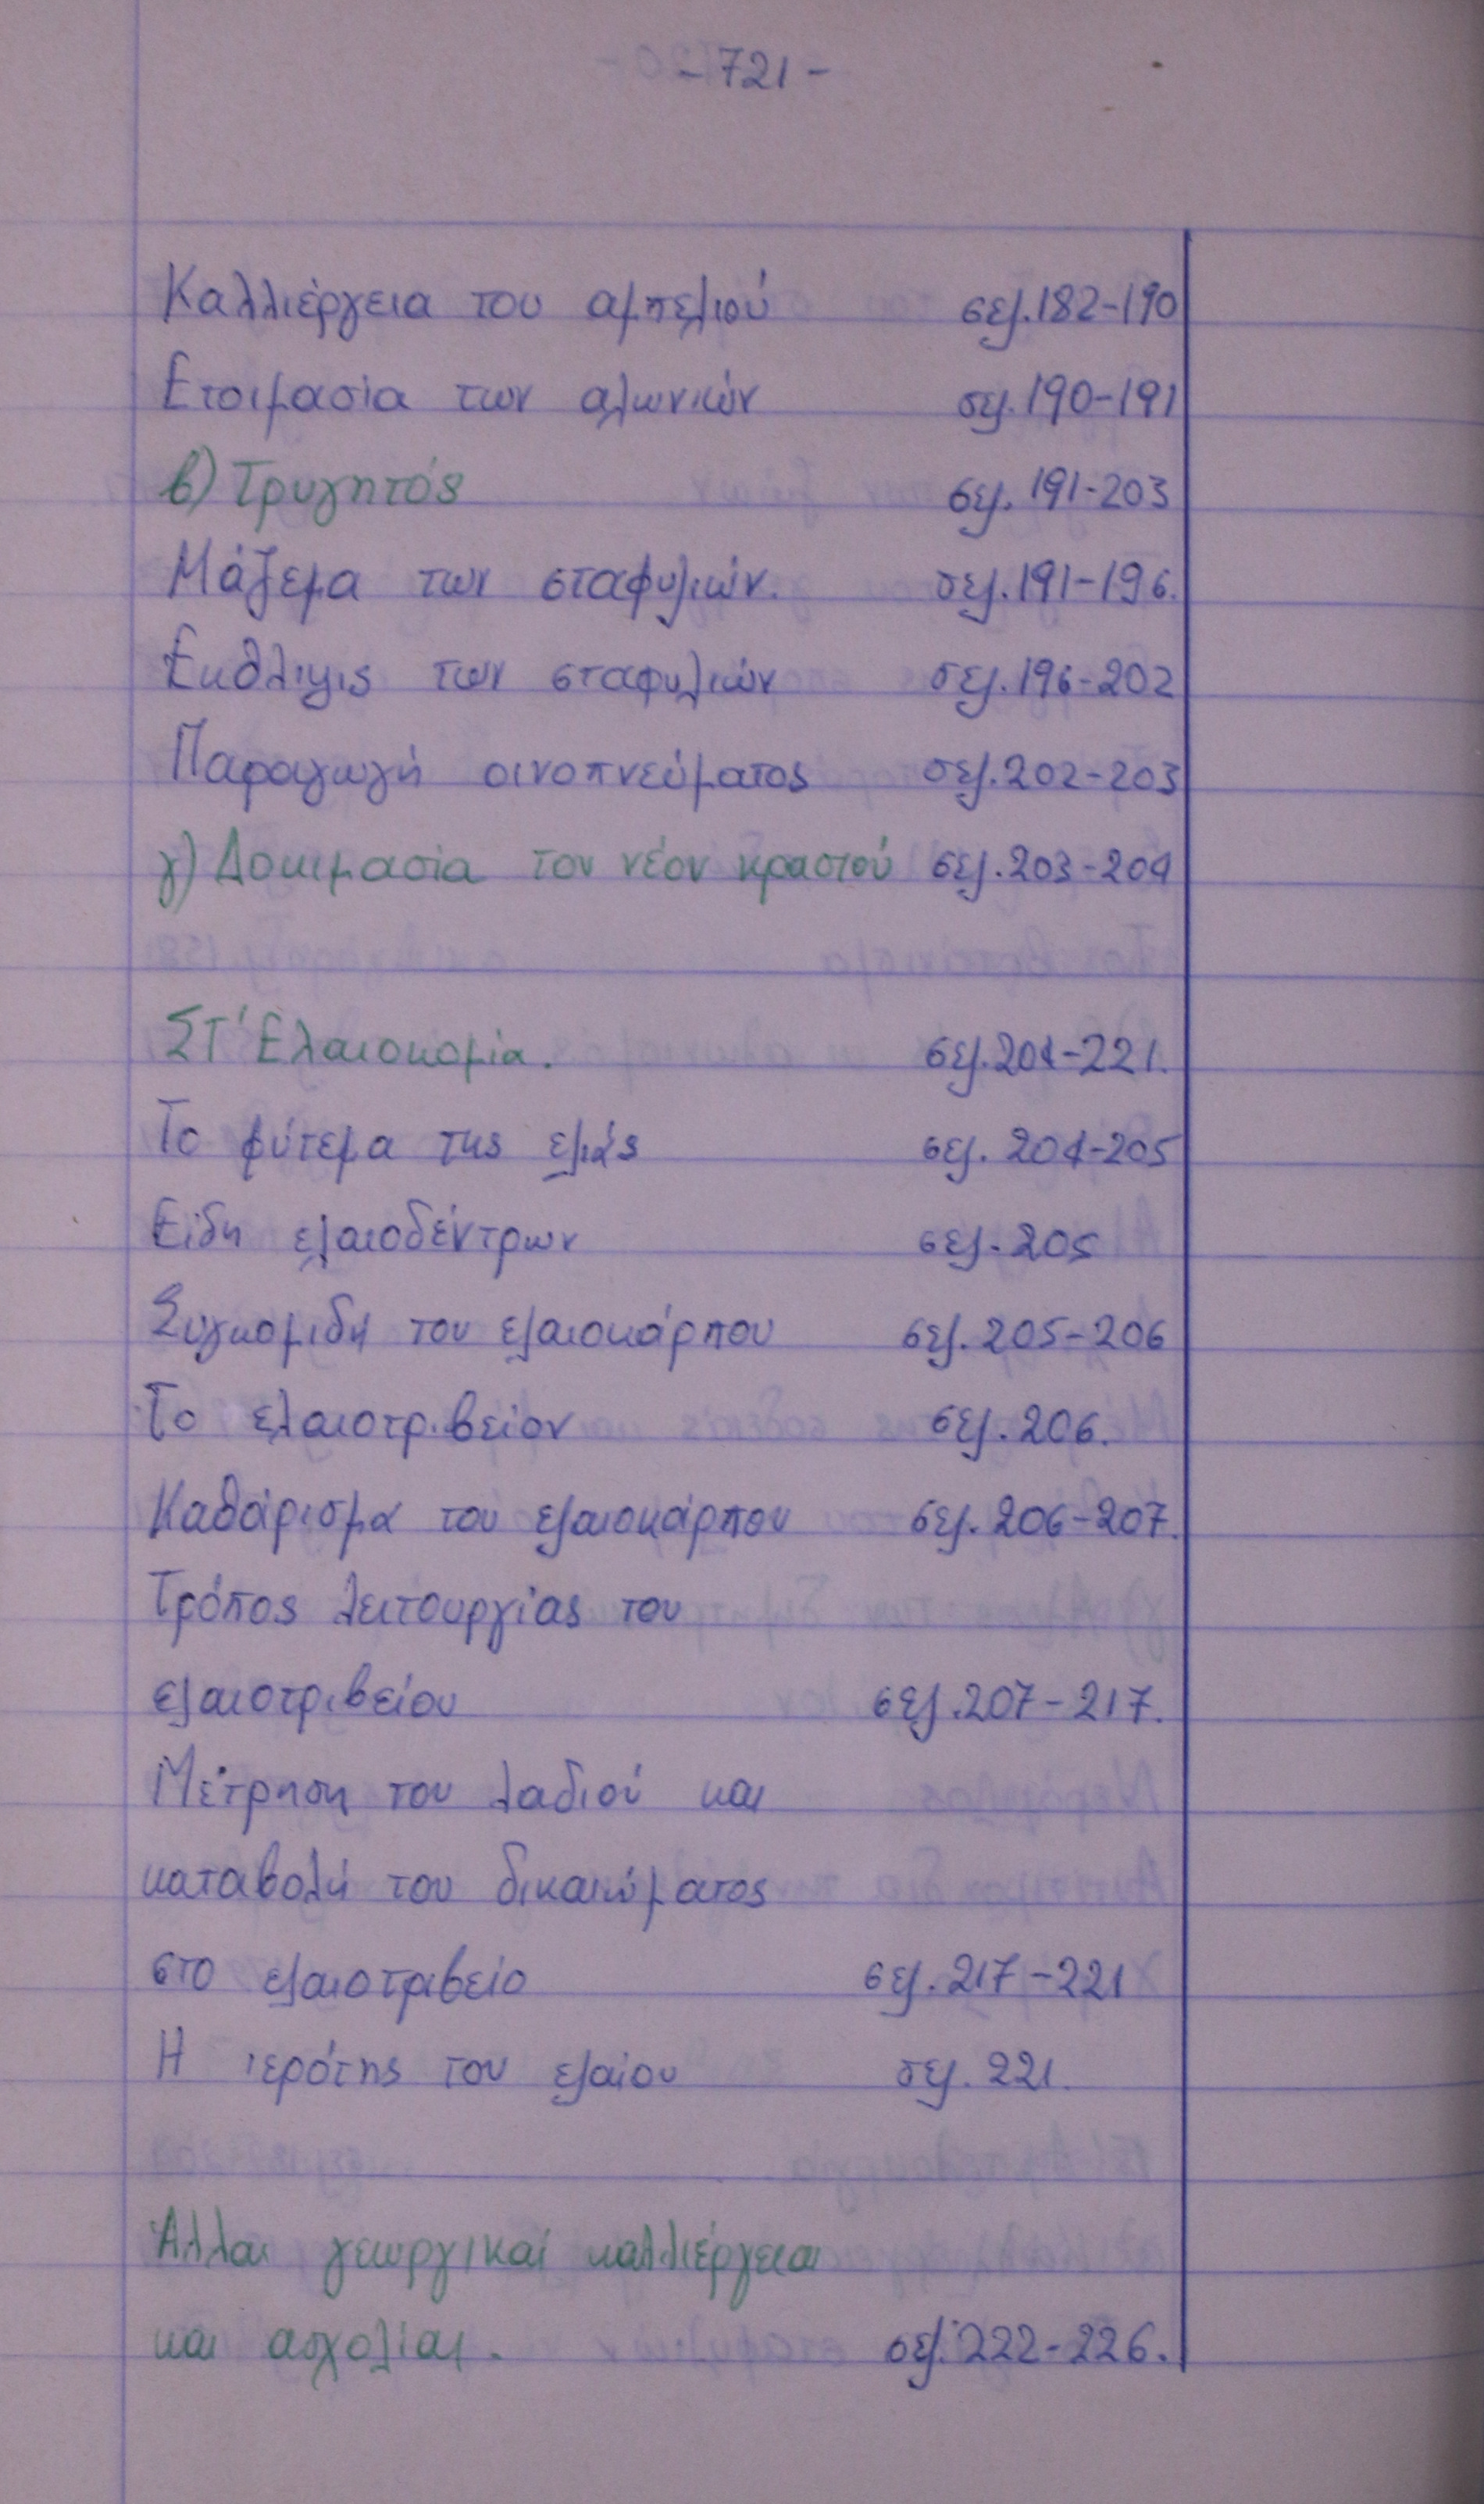 - 721 -
Καλλιέργεια του αμπελιού σελ. 182-190
Ετοιμασία των αλωνιών σελ. 190-191
β) Τρυγητός σελ. 191-203
Μάζεμα των σταφυλιών. σελ. 191-196.
Εκθλιψις των σταφυλιών σελ. 196-202
Παραγωγή οινοπνεύματος σελ. 202-203
γ) Δοκιμασία του νέου κρασιού σελ. 203-204
ΣΤ' Ελαιοκομία. σελ. 204-221.
Το φύτεμα της ελιάς σελ. 204-205
Είδη ελαιοδέντρων σελ. 205
Συγκομιδή του ελαιοκάρπου σελ. 205-206
Το ελαιοτριβείον σελ. 206.
Καθάρισμα του ελαιοκάρπου σελ. 206-207.
Τρόπος λειτουργίας του
ελαιοτριβείου σελ. 207-217.
Μέτρηση του λαδιού και
καταβολή του δικαιώματος
στο ελαιοτριβείο σελ. 217-221
Η ιερότης του ελαίου σελ. 221.
Άλλαι γεωργικαί καλλιέργειαι
και ασχολίαι. σελ. 222-226.